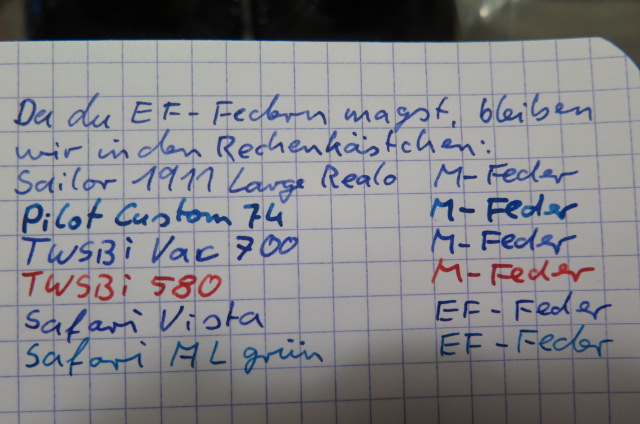 Da du EF-Federn magst, bleiben
wir in den Rechenkästchen:
Sailor 1911 Large Realo M-Feder
Pilot Custom 74 M-Feder
TWSBi Vac 700 M-Feder
TWSBi 580 M-Feder
Safari Vista EF-Feder
Safari AL grün EF-Feder